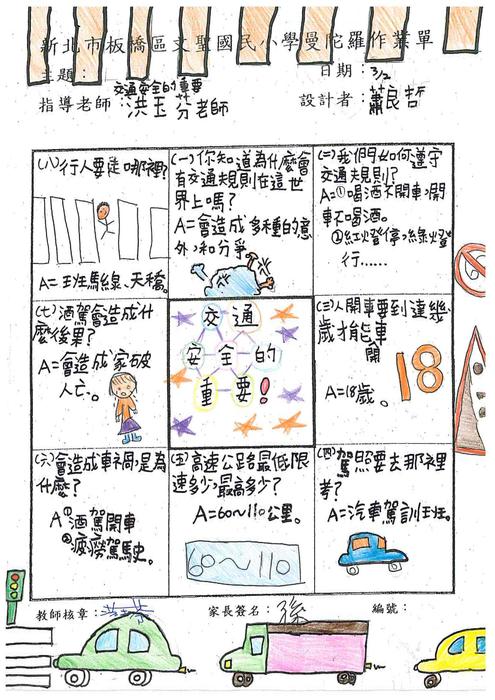 新北市板橋區文聖國民小學曼陀羅作業單
主題：交通安全的重要
日期：3/2
指導老師：洪玉芬老師
設計者：蕭良哲
(八)行人要徒哪裡?
A=班馬線、天橋。
(一)你知道為什麼會
有交通規則在這世
界上嗎?
A=會造成多種的意
外,和分爭
(二)我們如何遵守
交通規則?
A=①喝酒不開車,開
車不喝酒。
②紅燈停,綠燈
行……
(七)酒駕會造成什
麼後果?
A=會造成家破
人亡。
交通
安全的
重要!
(三)人開車要到達幾
歲才能開車
18
A=18歲。
(六)會造成車禍,是為
什麼?
A①酒駕開車
②疲勞駕駛。
(五)高速公路最低限
速多少,最高多少?
A=60～110公里。
60～110
(四)駕照要去那裡
考?
A=汽車駕訓班。
教師核章：
家長簽名：孫
編號：